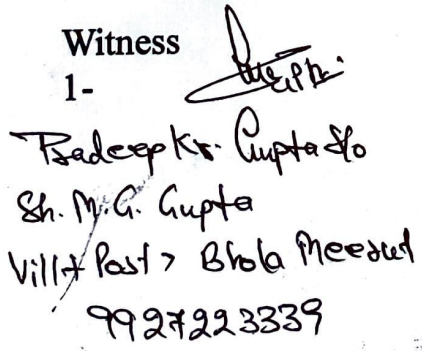 Witness
1-
Pradeep Kr. Gupta S/o
Sh. M.G. Gupta
Vill + Post > Bhola Meerut
9927223339